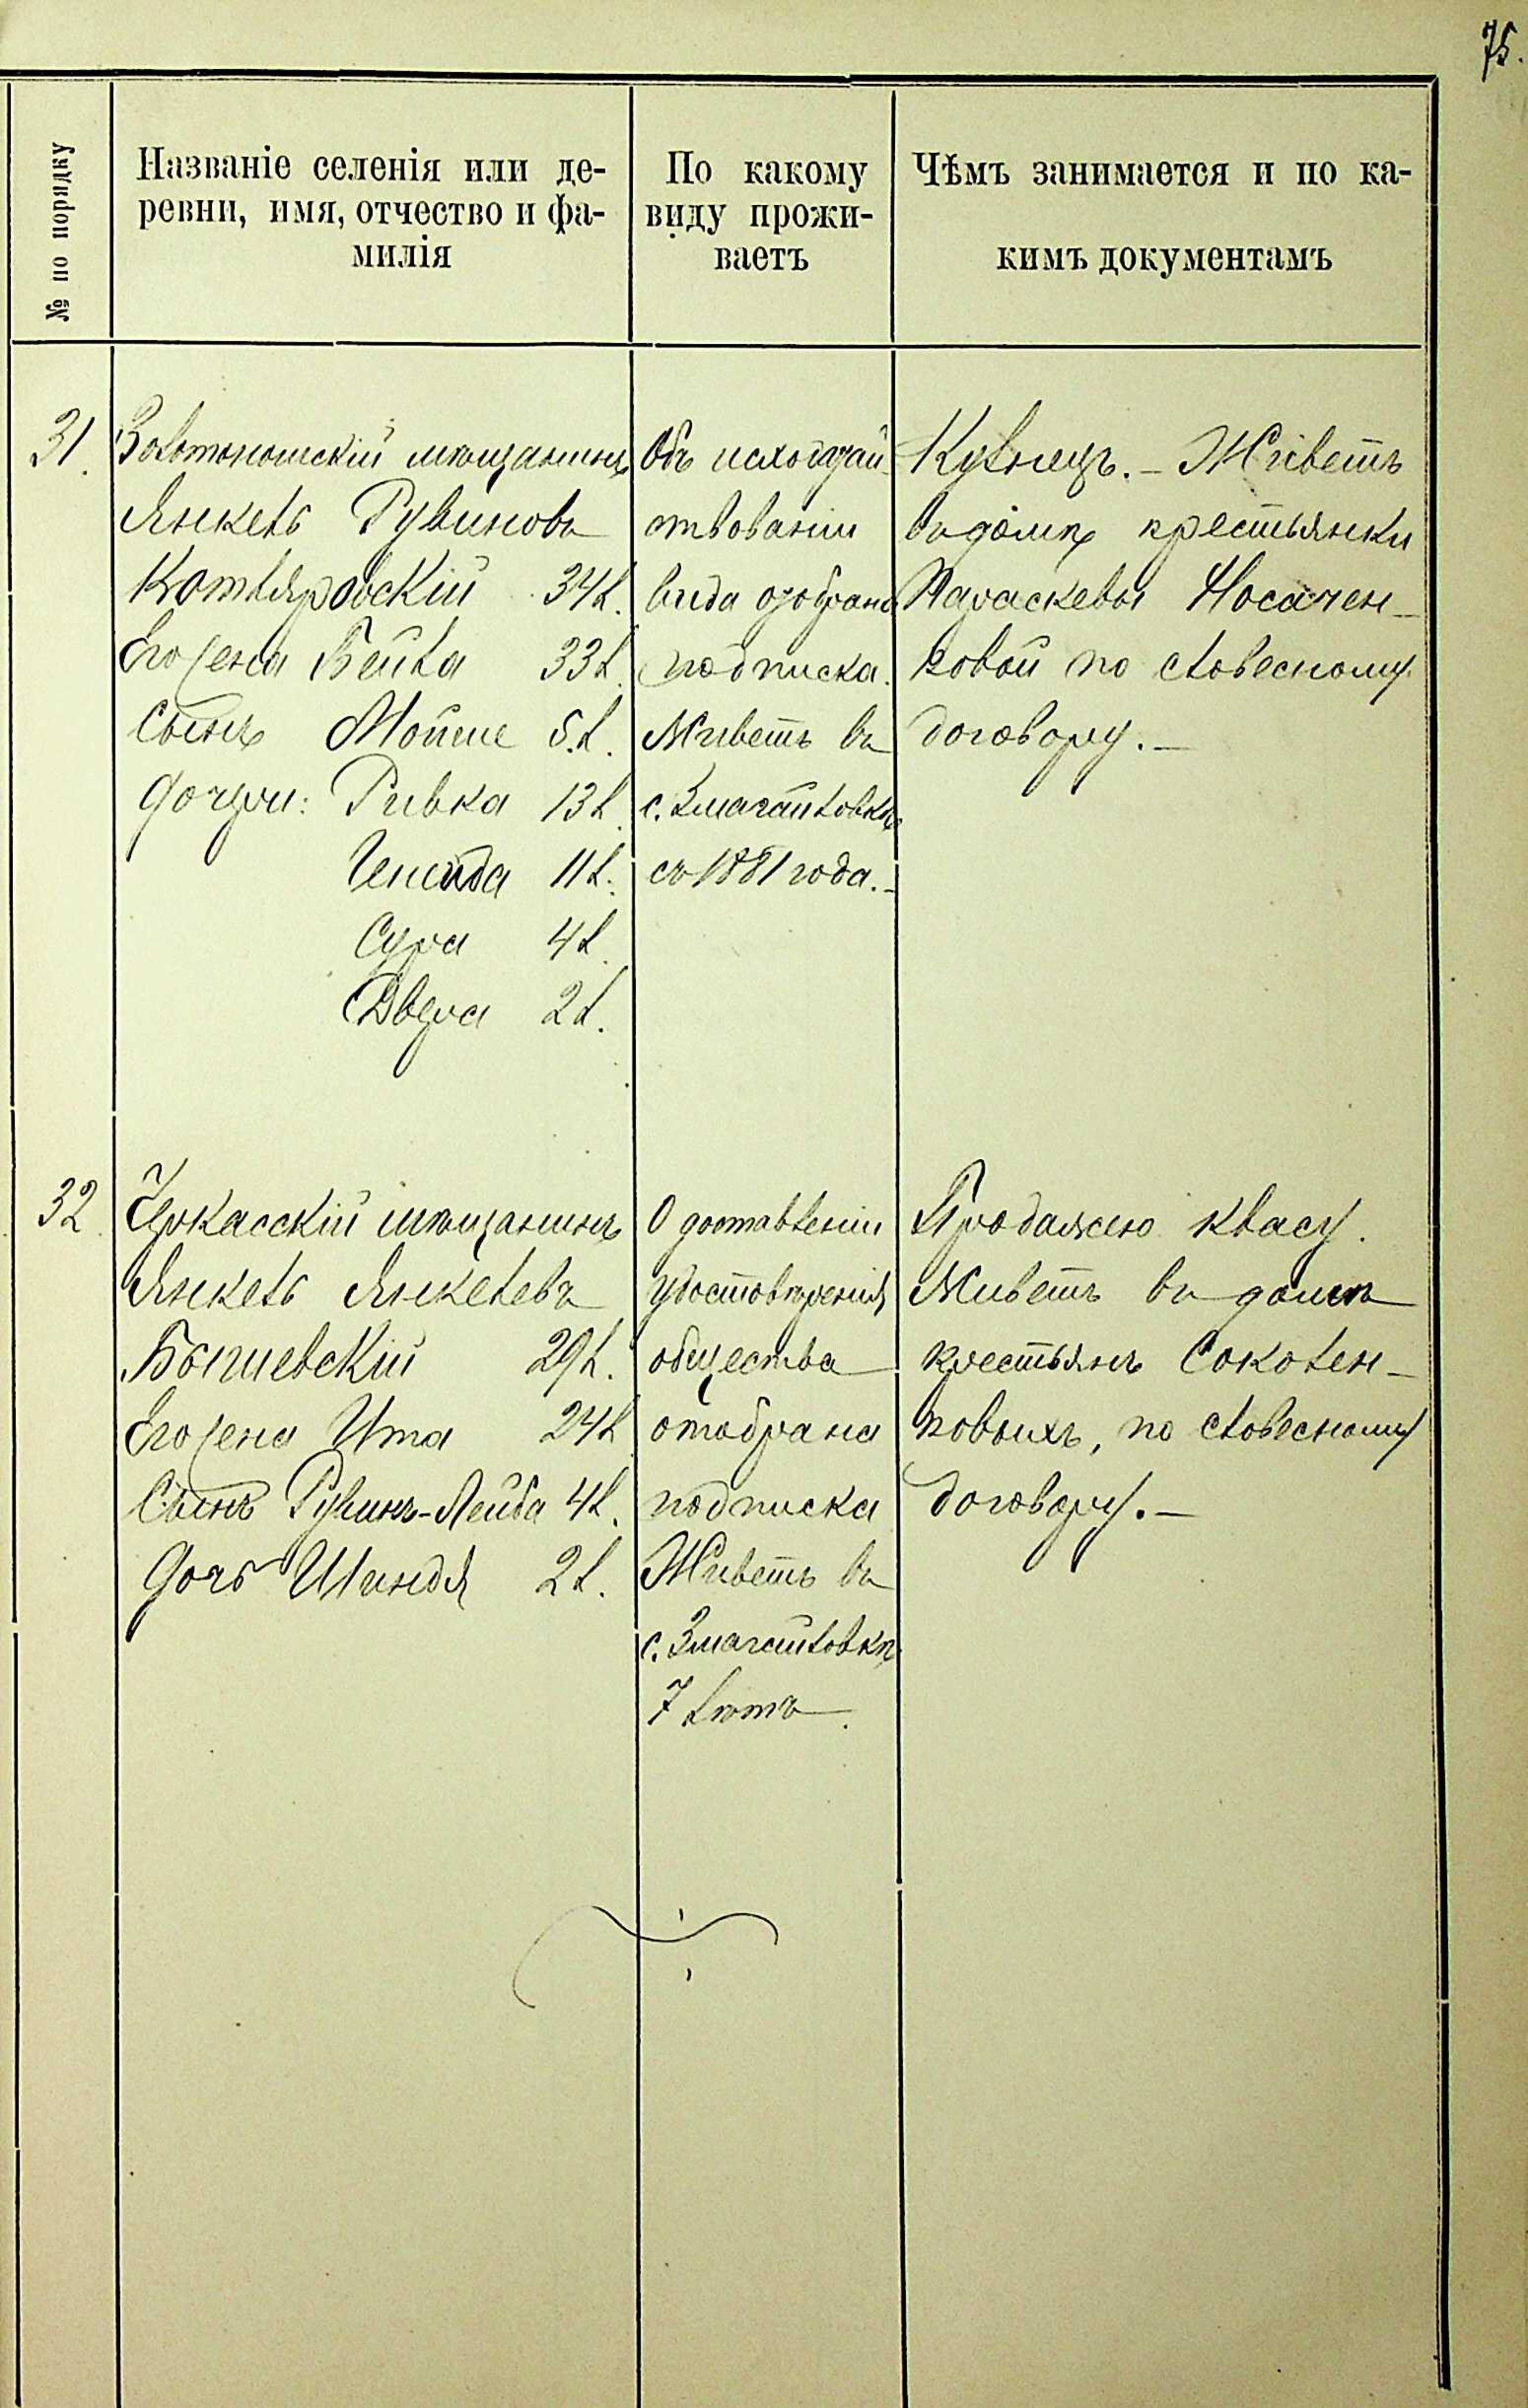 75.
№ по порядку
Названіе селенія или де-
ревни, имя, отчество и фа-
милія
По какому
виду прожи-
ваетъ
Чѣмъ занимается и по ка-
кимъ документамъ
31.
Золотоношскій мѣщанинъ
Янкель Рувиновъ
Котляровскій 34 л.
Его жена Бейла 33 л.
Сынъ Мойше 5 л.
Дочери: Ривка 13 л.
Генида 11 л.
Сура 4 л.
Двера 2 л.
Объ исходатай-
ствованіи
вида отобрана
подписка.
Живетъ въ
с. Змагайловкѣ
съ 1881 года.-
Кузнецъ.- Живетъ
въ домѣ крестьянки
Параскевы Носачен-
ковой по словесному
договору.-
32
Черкасскій мѣщанинъ
Янкель Янкелевъ
Богушевскій 29 л.
Его жена Ита 24 л
Сынъ Рувинъ-Лейба 4 л.
Дочь Шиндля 2 л.
О доставленіи
удостовѣренія
общества
отобрана
подписка
Живетъ въ
с. Змагайловкѣ
7 лѣтъ.
Продажею квасу.
Живетъ въ домѣ
крестьянъ Соколен-
ковыхъ, по словесному
договору.-